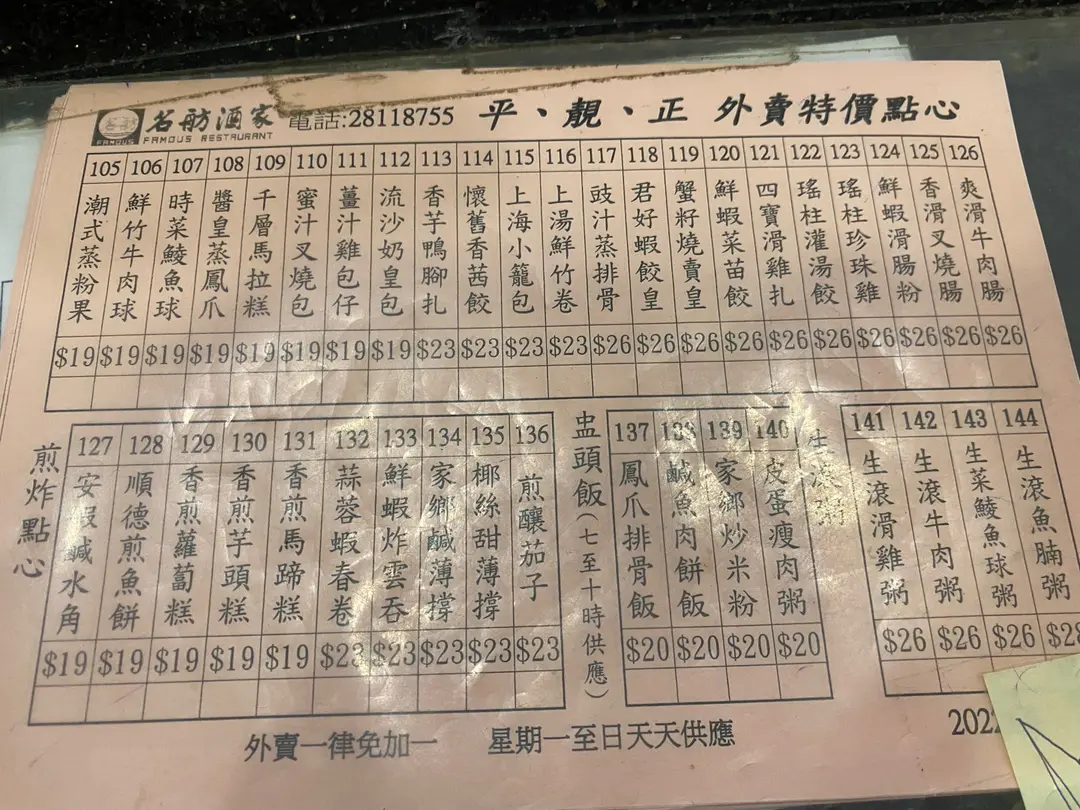 名舫酒家
FAMOUS RESTAURANT
電話:28118755
平、靚、正 外賣特價點心
105 潮式蒸粉果 $19
106 鮮竹牛肉球 $19
107 時菜鯪魚球 $19
108 醬皇蒸鳳爪 $19
109 千層馬拉糕 $19
110 蜜汁叉燒包 $19
111 薑汁雞包仔 $19
112 流沙奶皇包 $19
113 香芋鴨腳扎 $23
114 懷舊香茜餃 $23
115 上海小籠包 $23
116 上湯鮮竹卷 $23
117 豉汁蒸排骨 $26
118 君好蝦餃皇 $26
119 蟹籽燒賣皇 $26
120 鮮蝦菜苗餃 $26
121 四寶滑雞扎 $26
122 瑤柱灌湯餃 $26
123 瑤柱珍珠雞 $26
124 鮮蝦滑腸粉 $26
125 香滑叉燒腸 $26
126 爽滑牛肉腸 $26
煎炸點心
127 安蝦鹹水角 $19
128 順德煎魚餅 $19
129 香煎蘿蔔糕 $19
130 香煎芋頭糕 $19
131 香煎馬蹄糕 $19
132 蒜蓉蝦春卷 $23
133 鮮蝦炸雲吞 $23
134 家鄉鹹薄撐 $23
135 椰絲甜薄撐 $23
136 煎釀茄子 $23
盅頭飯(七至十時供應)
137 鳳爪排骨飯 $20
138 鹹魚肉餅飯 $20
139 家鄉炒米粉 $20
140 皮蛋瘦肉粥 $20
生滾粥
141 生滾滑雞粥 $26
142 生滾牛肉粥 $26
143 生菜鯪魚球粥 $26
144 生滾魚腩粥 $28
外賣一律免加一 星期一至日天天供應
2022